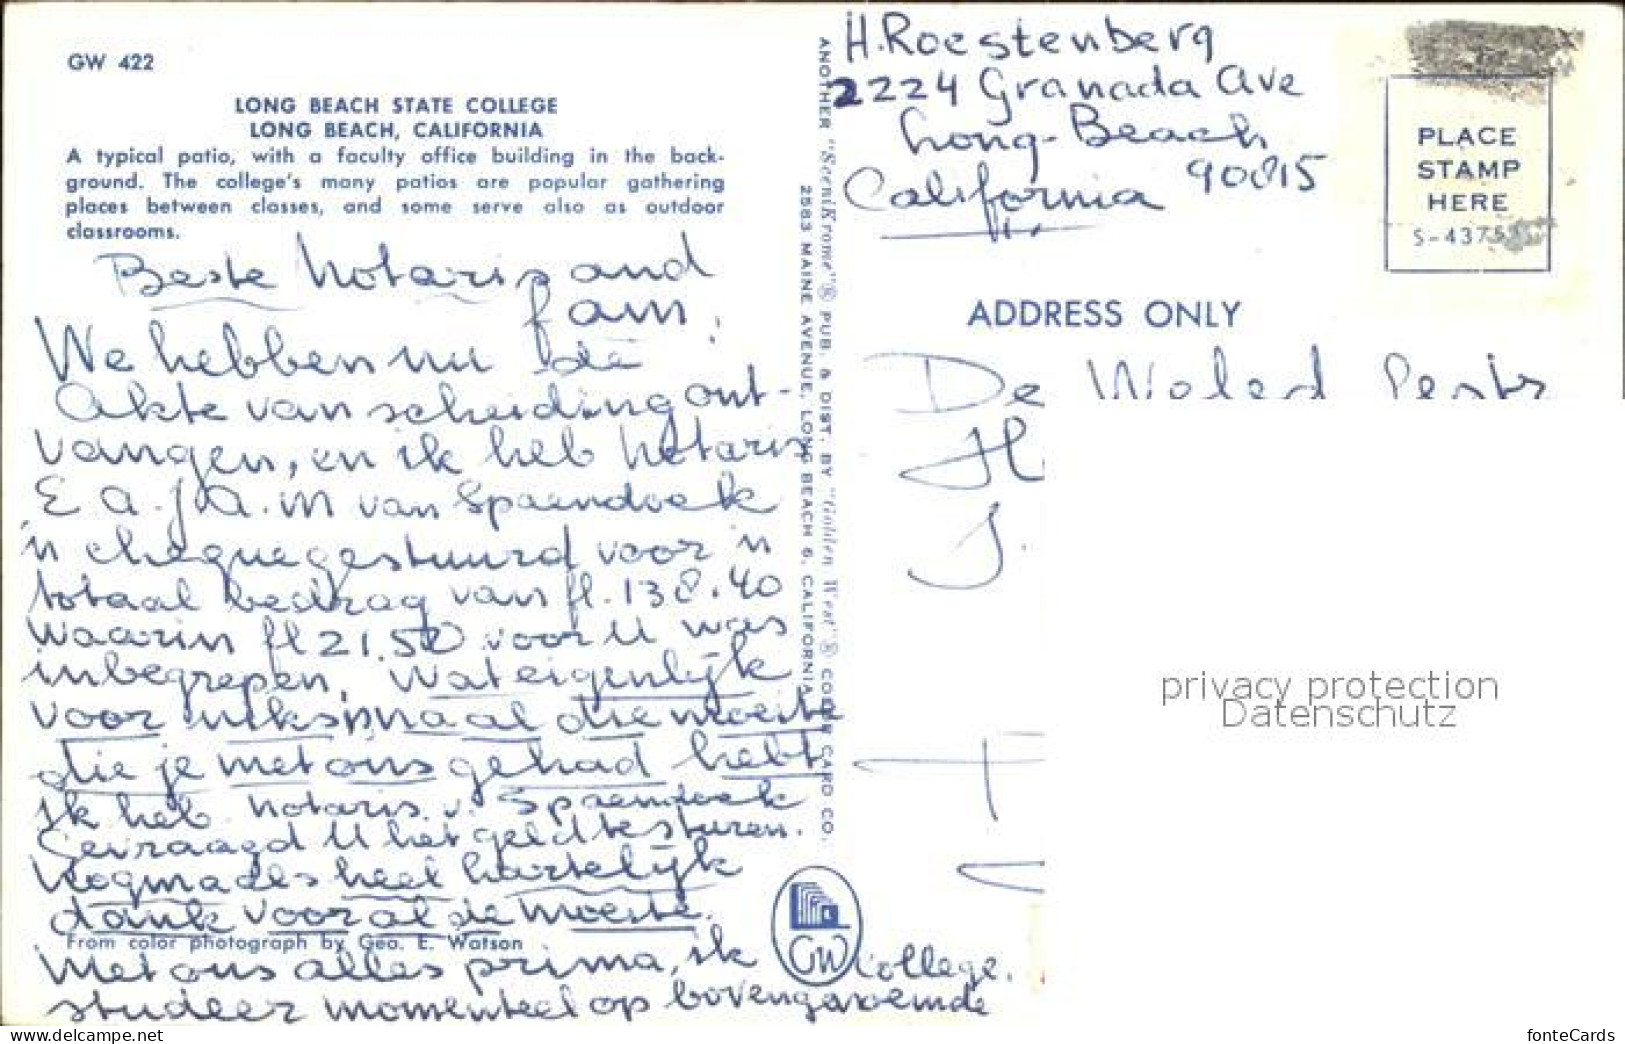 GW 422
LONG BEACH STATE COLLEGE
LONG BEACH, CALIFORNIA
A typical patio, with a faculty office building in the back-
ground. The college's many patios are popular gathering
places between classes, and some serve also as outdoor
classrooms.
Beste Notaris and
fam.
We hebben nu de
Akte van scheiding ont-
vangen, en ik heb Notaris
E.A.J.A.M van Spaendock
'n cheque gestuurd voor 'n
totaal bedrag van fl. 138.40
waarin fl 21.50 voor U was
inbegrepen, wat eigenlijk
voor niks maal die moeite
die je met ons gehad hebt
ik heb Notaris v. Spaendock
Gevraagd U het geld te sturen.
Nogmaals heel hartelijk
dank voor al de moeite.
From color photograph by Geo. E. Watson
Met ons alles prima, ik
studeer momenteel op bovengenoemde
College.
ANOTHER "SceniKrome"® PUB. & DIST. BY "Golden West"® COLOR CARD CO.
2583 MAINE AVENUE, LONG BEACH 6, CALIFORNIA
GW
H. Roestenberg
2224 Granada Ave
Long-Beach
California 90815
PLACE
STAMP
HERE
S-4375
ADDRESS ONLY
De Weled
H
J.
privacy protection
Datenschutz
picclick.net
fonteCards